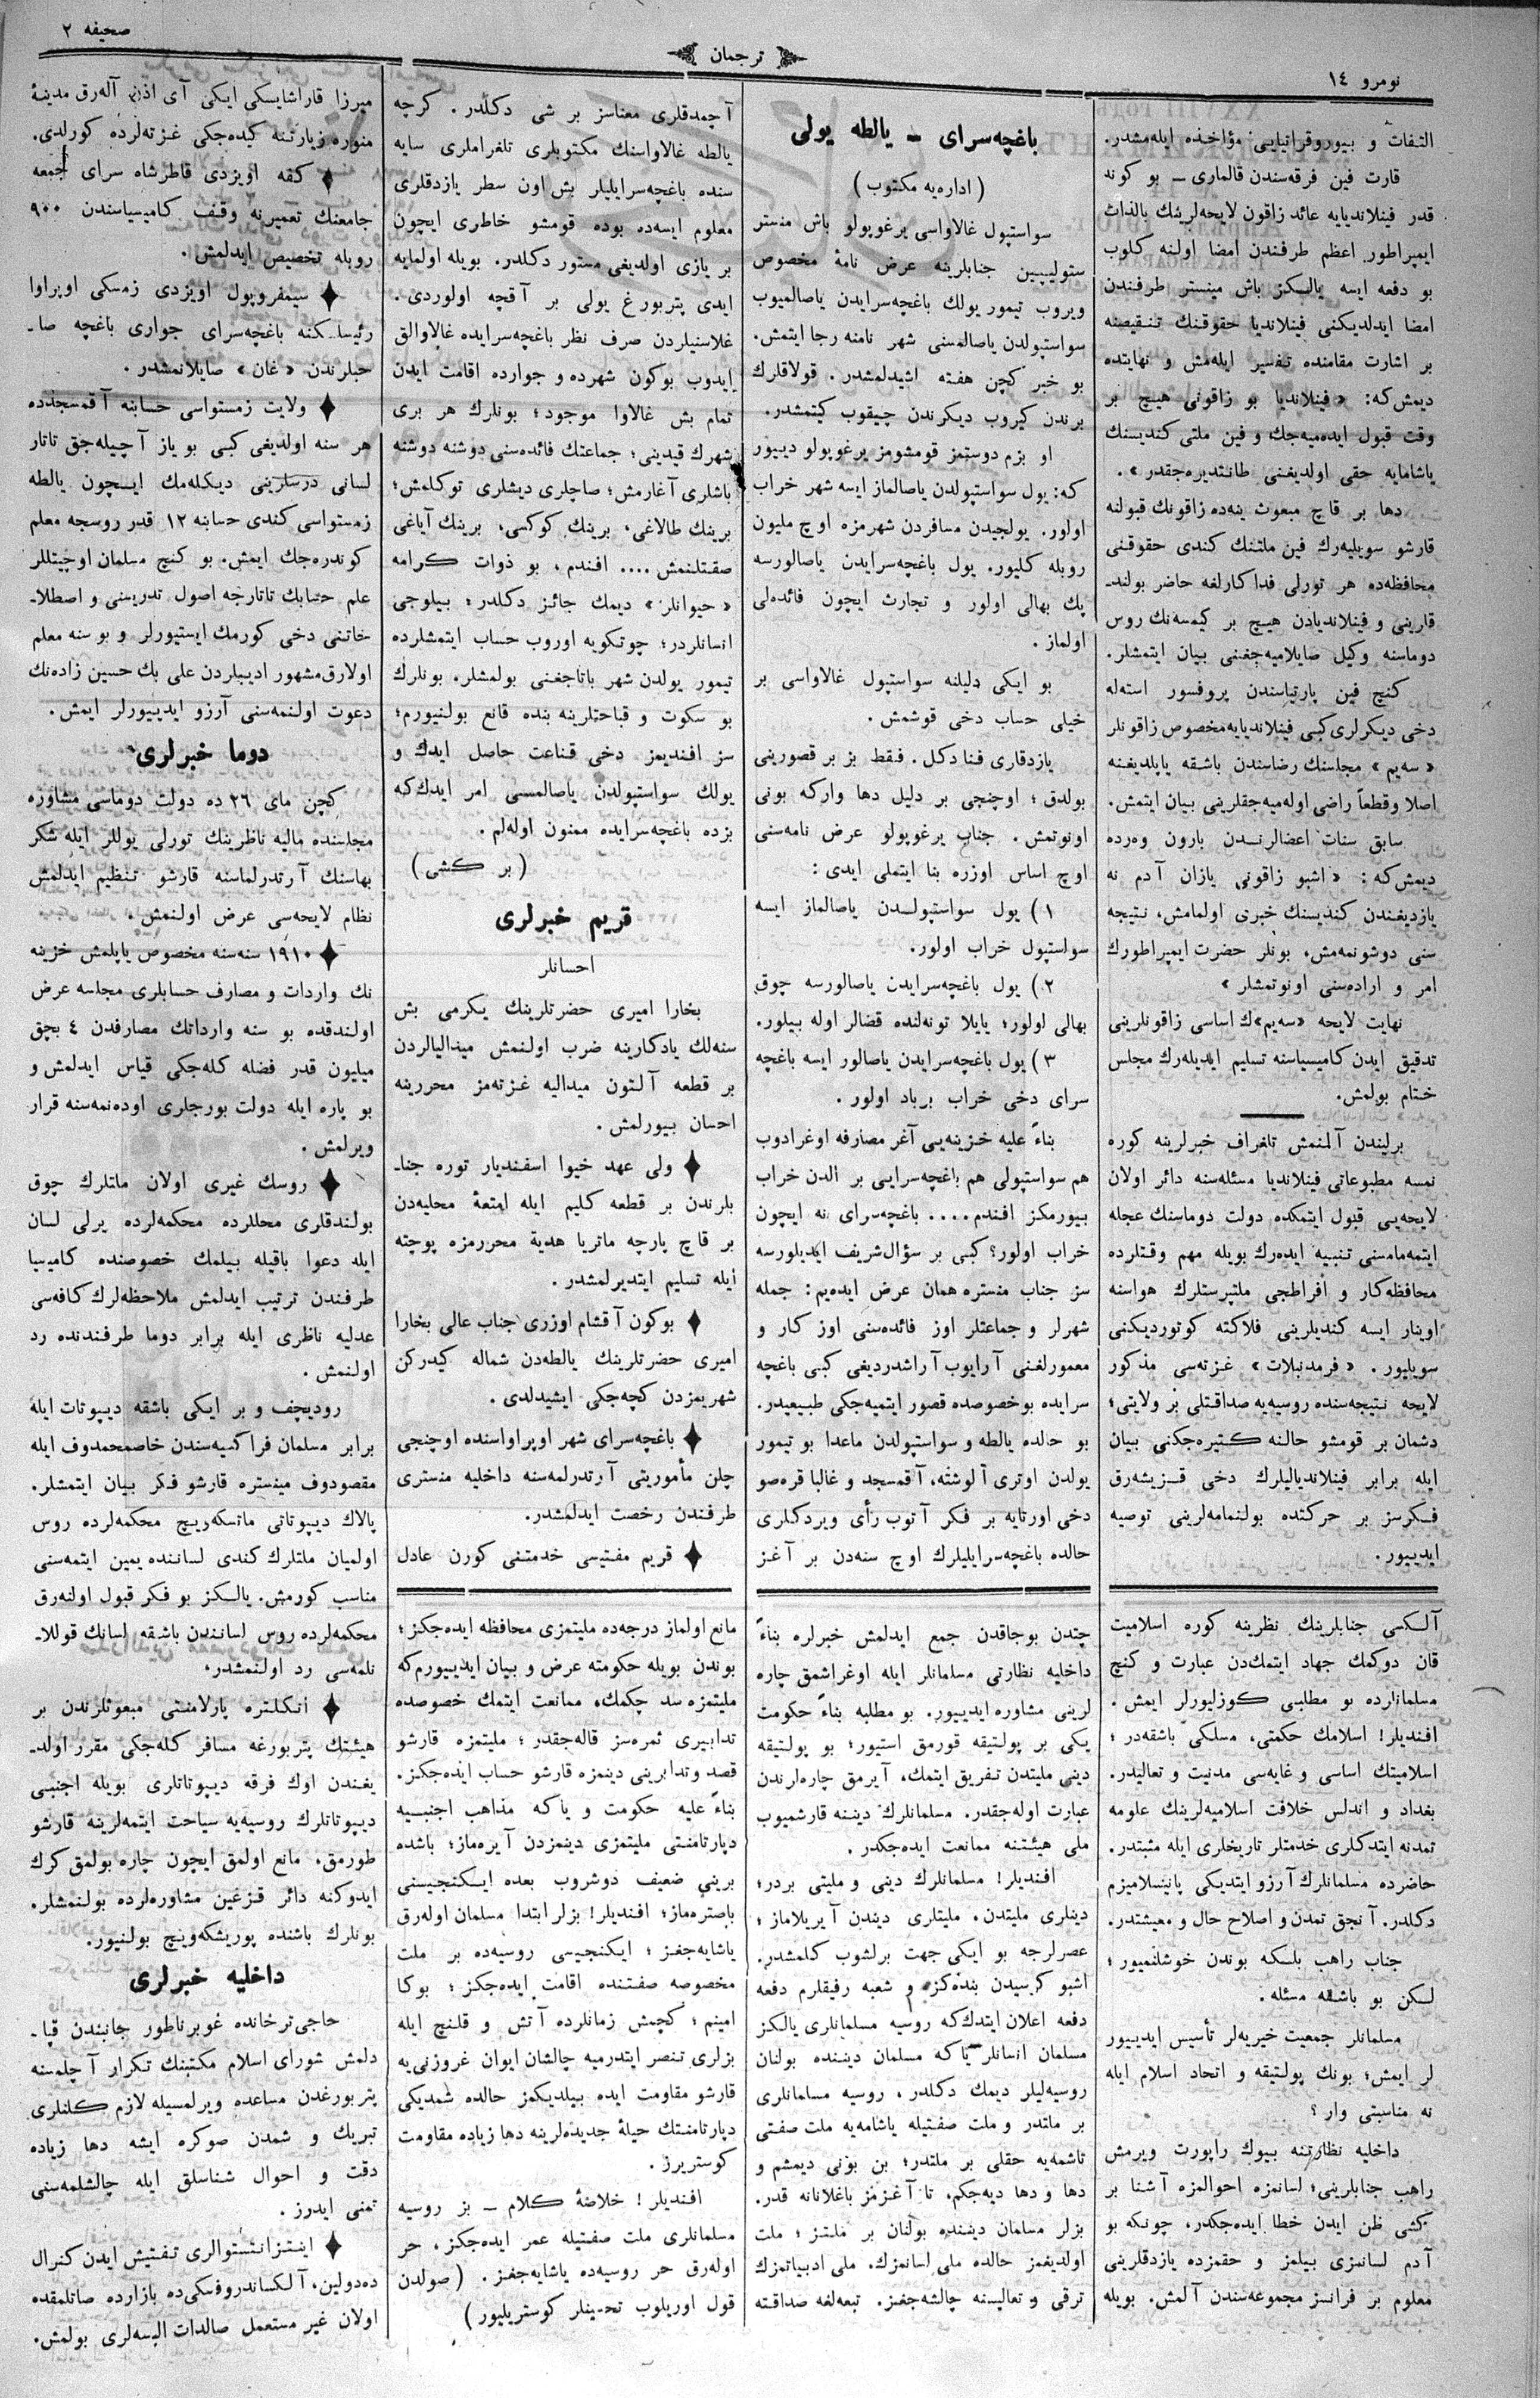 نومرو ١٤
ترجمان
صحیفه ٢
التفات و بیوروقراتیایی مؤاخذه ایله‌مشدر.
قارت فین فرقه‌سندن قالماری ـ بو كونه
قدر فینلاندیایه عائد زاقون لایحه‌لرینك بالذات
ایمپراطور اعظم طرفندن امضا اولنه كلوب
بو دفعه ایسه یالـكز باش مینستر طرفندن
امضا ایدلدیكنی فینلاندیا حقوقنك تنقیصنه
بر اشارت مقامنده تفسیر ایله‌مش و نهایتده
دیمش‌كه: «فینلاندیا بو زاقونی هیچ بر
وقت قبول ایده‌میه‌جك و فین ملتی كندیسنك
یاشامایه حقی اولدیغنی طانتدیره‌جقدر».
دها بر قاچ مبعوث ینه‌ده زاقونك قبولنه
قارشو سویلیه‌رك فین ملتنك كندی حقوقنی
محافظه‌ده هر تورلی فداكارلغه حاضر بولندـ
قارینی و فینلاندیادن هیچ بر كیمسه‌نك روس
دوماسنه وكیل صایلامیه‌جغنی بیان ایتمشلر.
كنچ فین پارتیاسندن پروفسور استه‌له
دخی دیكرلری كبی فینلاندیایه مخصوص زاقونلر
«سه‌یم» مجلسنك رضاسندن باشقه یاپلدیغنه
اصلا وقطعاً راضی اوله‌میه‌جقلرینی بیان ایتمش.
سابق سنات اعضالرنـدن بارون وه‌رده
دیمش‌كه: «اشبو زاقونی یازان آدم نه
یازدیغندن كندیسنك خبری اولمامش، نتیجه
سنی دوشونمه‌مش، بونلر حضرت ایمپراطورك
امر و اراده‌سنی اونوتمشلر»
نهایت لایحه «سه‌یم»ك اساسی زاقونلرینی
تدقیق ایدن كامیسیاسنه تسلیم ایدیله‌رك مجلس
ختام بولمش.
برلیندن آلنمش تلغراف خبرلرینه كوره
نمسه مطبوعاتی فینلاندیا مسئله‌سنه دائر اولان
لایحه‌یی قبول ایتمكده دولت دوماسنك عجله
ایتمه‌مامسنی تنبیه ایده‌رك بویله مهم وقتلرده
محافظه‌كار و افراطجی ملتپرستلرك هواسنه
اوینار ایسه كندیلرینی فلاكته كوتوردیكنی
سویلیور. «فرمدنبلات» غزته‌سی مذكور
لایحه نتیجه‌سنده روسیه‌یه صداقتلی بر ولایتی؛
دشمان بر قومشو حالنه كتیره‌جكنی بیان
ایله برابر فینلاندیالیلرك دخی قـزیشه‌رق
فـكرسز بر حركتده بولنمامه‌لرینی توصیه
ایدییور.
باغچه‌سرای ـ یالطه یولی
(اداره‌یه مكتوب)
سواستپول غالاواسی یرغوپولو باش منستر
ستولیپین جنابلرینه عرض نامهٔ مخصوص
ویروب تیمور یولك باغچه‌سرایدن یاصالمیوب
سواستپولدن یاصالمسنی شهر نامنه رجا ایتمش.
بو خبر كچن هفته اشیدلمشدر. قولاقلرك
برندن كیروب دیكرندن چیقوب كیتمشدر.
او بزم دوستمز قومشومز یرغوپولو دیـیور
كه: یول سواستپولدن یاصالماز ایسه شهر خراب
اولور. یولجیدن مسافردن شهرمزه اوچ ملیون
روبله كلیور. یول باغچه‌سرایدن یاصالورسه
پك بهالی اولور و تجارت ایچون فائده‌لی
اولماز.
بو ایكی دلیلنه سواستپول غالاواسی بر
خیلی حساب دخی قوشمش.
یازدقاری فنا دكل. فقط بز بر قصورینی
بولدق؛ اوچنجی بر دلیل دها واركه بونی
اونوتمش. جناب یرغوپولو عرض نامه‌سنی
اوچ اساس اوزره بنا ایتملی ایدی:
١) یول سواستپولـدن یاصالماز ایسه
سواستپول خراب اولور.
٢) یول باغچه‌سرایدن یاصالورسه چوق
بهالی اولور؛ یایلا تونه‌لنده قضالر اوله بیلور.
٣) یول باغچه‌سرایدن یاصالور ایسه باغچه
سرای دخی خراب برباد اولور.
بناءً علیه خزینه‌یی آغر مصارفه اوغرادوب
هم سواستپولی هم باغچه‌سرایی بر الدن خراب
بیورمكز افندم.... باغچه‌سرای نه ایچون
خراب اولور؟ كبی بر سؤال‌شریف ایدیلورسه
سز جناب منستره همان عرض ایده‌یم: جمله
شهرلر و جماعتلر اوز فائده‌سنی اوز كار و
معمورلغنی آرایوب آراشدردیغی كبی باغچه
سرایده بو خصوصده قصور ایتمیه‌جكی طبیعیدر.
بو حالده یالطه و سواستپولدن ماعدا بو تیمور
یولدن اوتری آلوشته، آقمسجد و غالبا قره‌صو
دخی اورتایه بر فكر آتوب رأی ویردكلری
حالده باغچه‌سرایلیلرك اوچ سنه‌دن بر آغز
آچمدقلری معناسز بر شی دكلدر. كرچه
یالطه غالاواسنك مكتوبلری تلغراملری سایه
سنده باغچه‌سرایلیلر بش اون سطر یازدقلری
معلوم ایسه‌ده بوده قومشو خاطری ایچون
بر یازی اولدیغی مستور دكلدر. بویله اولمایه
ایدی پتربورغ یولی بر آقچه اولوردی.
غلاسنیلردن صرف نظر باغچه‌سرایده غالاوالق
ایدوب بوكون شهرده و جوارده اقامت ایدن
تمام بش غالاوا موجود؛ بونلرك هر بری
شهرك قیدینی؛ جماعتك فائده‌سنی دوشنه دوشنه
باشلری آغارمش؛ صاچلری دیشلری توكلمش؛
برینك طالاغی، برینك كوكسی، برینك آیاغی
صقتلنمش.... افندم، بو ذوات كـرامه
«حیوانلر» دیمك جائز دكلدر؛ بیلوجی
انسانلردر؛ چوتكویه اوروب حساب ایتمشلرده
تیمور یولدن شهر باتاجغنی بولمشلر. بونلرك
بو سكوت و قباحتلرینه بنده قانع بولنیورم؛
سز افندیمز دخی قناعت حاصل ایدك و
یولك سواستپولدن یاصالمسی امر ایدك‌كه
بزده باغچه‌سرایده ممنون اوله‌لم.
(بر كشی)
قریم خبرلری
احسانلر
بخارا امیری حضرتلرینك یكرمی بش
سنه‌لك یادكارینه ضرب اولنمش میدالیالردن
بر قطعه آلتون میدالیه غزته‌مز محررینه
احسان بیورلمش.
ولی عهد خیوا اسفندیار توره جناـ
بلرندن بر قطعه كلیم ایله امتعهٔ محلیه‌دن
بر قاچ پارچه ماتریا هدیهٔ محررمزه پوچته
ایله تسلیم ایتدیرلمشدر.
بوكون آقشام اوزری جناب عالی بخارا
امیری حضرتلرینك یالطه‌دن شماله كیدركن
شهریمزدن كچه‌جكی ایشیدلدی.
باغچه‌سرای شهر اوپراواسنده اوچنجی
چلن مأموریتی آرتدرلمه‌سنه داخلیه منستری
طرفندن رخصت ایدلمشدر.
قریم مفتیسی خدمتنی كورن عادل
میرزا قاراشایسكی ایكی آی اذن آله‌رق مدینهٔ
منوره زیارتنه كیده‌جكی غزته‌لرده كورلدی.
كفه اویزدی قاطرشاه سرای جمعه
جامعنك تعمیرینه وقف كامیسیاسندن ٩٠٠
روبله تخصیص ایدلمش.
سیمفروپول اویزدی زمسكی اوپراوا
رئیسلكنه باغچه‌سرای جواری باغچه صاـ
حبلرندن «غان» صایلانمشدر.
ولایت زمستواسی حسابنه آقمسجدده
هر سنه اولدیغی كبی بو یاز آچیله‌جق تاتار
لسانی درسلرینی دیكله‌مك ایـچون یالطه
زمستواسی كندی حسابنه ١٢ قدر روسجه معلم
كوندره‌جك ایمش. بو كنچ مسلمان اوچیتللر
علم حسابك تاتارجه اصول تدریسنی و اصطلاـ
حاتنی دخی كورمك ایستیورلر و بو سنه معلم
اولارق مشهور ادیبلردن علی بك حسین زاده‌نك
دعوت اولنمه‌سنی آرزو ایدییورلر ایمش.
دوما خبرلری
كچن مای ٢٦ ده دولت دوماسی مشاوره
مجلسنده مالیه ناظرینك تورلی یوللر ایله شكر
بهاسنك آرتدرلماسنه قارشو تنظیم ایدلمش
نظام لایحه‌سی عرض اولنمش.
١٩١٠ سنه‌سنه مخصوص یاپلمش خزینه
نك واردات و مصارف حسابلری مجلسه عرض
اولندقده بو سنه وارداتك مصارفدن ٤ بچق
میلیون قدر فضله كله‌جكی قیاس ایدلمش و
بو پاره ایله دولت بورجلری اوده‌نمه‌سنه قرار
ویرلمش.
روسك غیری اولان ملتلرك چوق
بولندقلری محللرده محكمه‌لرده یرلی لسان
ایله دعوا باقیله بیلمك خصوصنده كامیسیا
طرفندن ترتیب ایدلمش ملاحظه‌لرك كافه‌سی
عدلیه ناظری ایله برابر دوما طرفندنده رد
اولنمش.
رودیچف و بر ایكی باشقه دیپوتات ایله
برابر مسلمان فراكسیه‌سندن خاصمحمدوف ایله
مقصودوف مینستره قارشو فكر بیان ایتمشلر.
پالاك دیپوتاتی ماتسكه‌ویچ محكمه‌لرده روس
اولمیان ملتلرك كندی لساننده یمین ایتمه‌سنی
مناسب كورمش. یالـكز بو فكر قبول اولنه‌رق
محكمه‌لرده روس لسانندن باشقه لسانك قوللاـ
نلمه‌سی رد اولنمشدر.
انكلتره پارلامنتی مبعوثلرندن بر
هیئتك پتربورغه مسافر كله‌جكی مقرر اولدـ
یغندن اوك فرقه دیپوتاتلری بویله اجنبی
دیپوتاتلرك روسیه‌یه سیاحت ایتمه‌لرینه قارشو
طورمق، مانع اولمق ایچون چاره بولمق كرك
ایدوكنه دائر قـزغین مشاوره‌لرده بولنمشلر.
بونلرك باشنده پوریشكه‌ویچ بولنیور.
داخلیه خبرلری
حاجی‌ترخانده غوبرناطور جانبندن قپاـ
دلمش شورای اسلام مكتبنك تكرار آچلمسنه
پتربورغدن مساعده ویرلمسیله لازم كلنلری
تبریك و شمدن صوكره ایشه دها زیاده
دقت و احوال شناسلق ایله چالشلمه‌سنی
تمنی ایدرز.
اینتزانتستوالری تفتیش ایدن كنرال
ده‌دولین، آلكساندروفسكی‌ده بازارده صاتلمقده
اولان غیر مستعمل صالدات البسه‌لری بولمش.
آلـكسی جنابلرینك نظرینه كوره اسلامیت
قان دوكمك جهاد ایتمك‌دن عبارت و كنچ
مسلمانلرده بو مطلبی كـوزلیورلر ایمش.
افندیلر! اسلامك حكمتی، مسلكی باشقه‌در؛
اسلامیتك اساسی و غایه‌سی مدنیت و تعالیدر.
بغداد و اندلس خلافت اسلامیه‌لرینك علومه
تمدنه ایتدكلری خدمتلر تاریخلری ایله مثبتدر.
حاضرده مسلمانلرك آرزو ایتدیكی پانیسلامیزم
دكلدر. آنجق تمدن و اصلاح حال و معیشتدر.
جناب راهب بلـكه بوندن خوشلنمیور؛
لـكن بو باشقه مسئله.
مسلمانلر جمعیت خیریه‌لر تأسیس ایدییور
لر ایمش؛ بونك پولتیقه و اتحاد اسلام ایله
نه مناسبتی وار؟
داخلیه نظارتنه بیوك راپورت ویرمش
راهب جنابلرینی؛ لسانمزه احوالمزه آشنا بر
كشی ظن ایدن خطا ایده‌جكدر، چونكه بو
آدم لسانمزی بیلمز و حقمزده یازدقلرینی
معلوم بر فرانسز مجموعه‌سندن آلمش. بویله
چتدن بوجاقدن جمع ایدلمش خبرلره بناءً
داخلیه نظارتی مسلمانلر ایله اوغراشمق چاره
لرینی مشاوره ایدییور. بو مطلبه بناءً حكومت
یكی بر پولتیقه قورمق استیور؛ بو پولتیقه
دینی ملیتدن تفریق ایتمك، آیرمق چاره‌لرندن
عبارت اوله‌جقدر. مسلمانلرك دیننه قارشمیوب
ملی هیئتنه ممانعت ایده‌جكدر.
افندیلر! مسلمانلرك دینی و ملیتی بردر؛
دینلری ملیتدن، ملیتلری دیندن آیریلاماز؛
عصرلرجه بو ایكی جهت برلشوب كلمشدر.
اشبو كرسیدن بنده‌كز و شعبه رفیقلرم دفعه
دفعه اعلان ایتدك‌كه روسیه مسلمانلری یالـكز
مسلمان انسانلر یا كه مسلمان دیننده بولنان
روسیه‌لیلر دیمك دكلدر، روسیه مسلمانلری
بر ملتدر و ملت صفتیله یاشامه‌یه ملت صفتی
تاشمه‌یه حقلی بر ملتدر؛ بن بونی دیمشم و
دها و دها دیه‌جكم، تا آغزمز باغلانانه قدر.
بزلر مسلمان دیننده بولنان بر ملتز؛ ملت
اولدیغمز حالده ملی لسانمزك، ملی ادبیاتمزك
ترقی و تعالیسنه چالشه‌جغز. تبعه‌لغه صداقته
مانع اولماز درجه‌ده ملیتمزی محافظه ایده‌جكز؛
بوندن بویله حكومته عرض و بیان ایدییورم‌كه
ملیتمزه سد چكمك، ممانعت ایتمك خصوصده
تدابیری ثمره‌سز قاله‌جقدر؛ ملیتمزه قارشو
قصد و تدابرینی دینمزه قارشو حساب ایده‌جكز.
بناءً علیه حكومت و یا كه مذاهب اجنبـیه
دپارتامنتی ملیتمزی دینمزدن آیره‌ماز؛ باشده
برینی ضعیف دوشروب بعده ایـكنجیسنی
باصتره‌ماز؛ افندیلر! بزلر ابتدا مسلمان اوله‌رق
یاشایه‌جغز؛ ایكنجیسی روسیه‌ده بر ملت
مخصوصه صفتنده اقامت ایده‌جكز؛ بوكا
امینم؛ كچمش زمانلرده آتش و قلنج ایله
بزلری تنصر ایتدرمیه چالشان ایوان غروزنی‌یه
قارشو مقاومت ایده بیلدیكمز حالده شمدیكی
دپارتامنتك حیلهٔ جدیده‌لرینه دها زیاده مقاومت
كوستریرز.
افندیلر! خلاصهٔ كلام ـ بز روسیه
مسلمانلری ملت صفتیله عمر ایده‌جكز، حر
اوله‌رق حر روسیه‌ده یاشایه‌جغز. (صولدن
قول اوریلوب تحسینلر كوستریلیور)